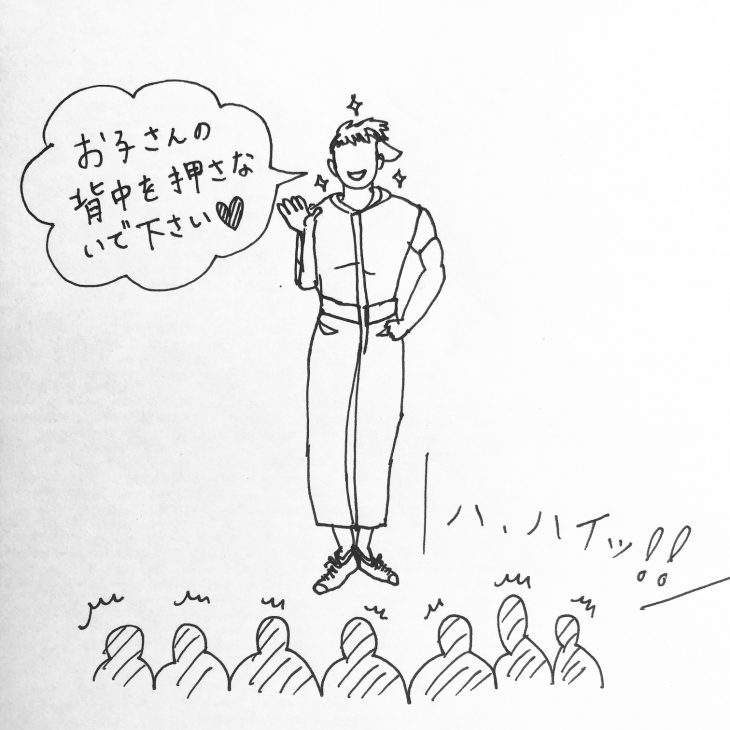 お子さんの
背中を押さな
いで下さい♥
ハ、ハイッ!!